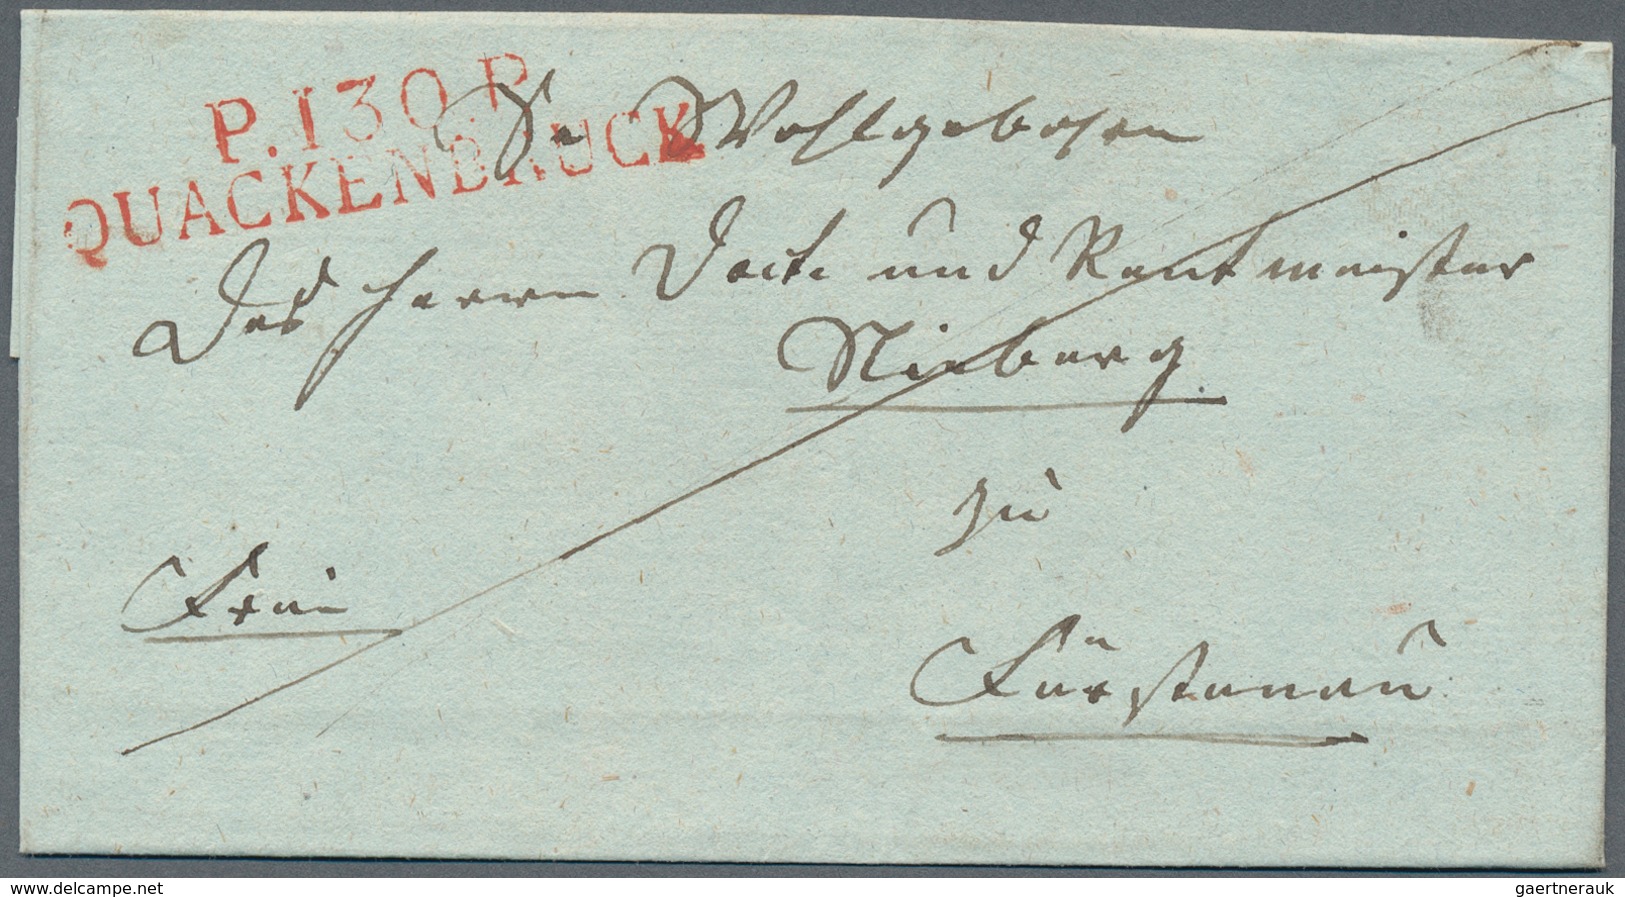 P.130.P.
QUACKENBRUCK
Sr Wohlgeboren
Des Herrn Doct. und Rentmeister
Nieberg
zu
Frei
Fürstenau
www.delcampe.net
gaertnerauk